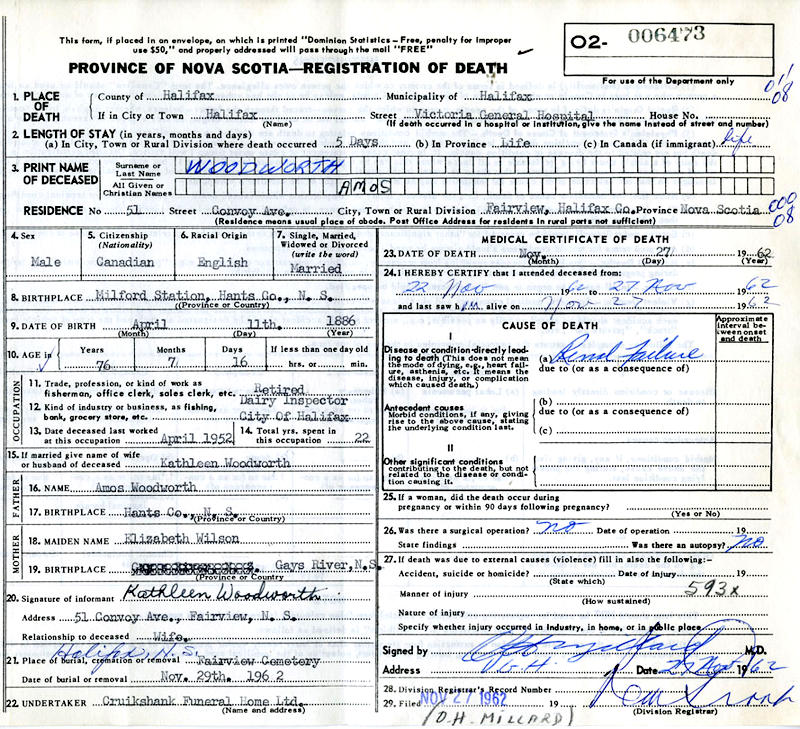 This form, if placed in an envelope, on which is printed "Dominion Statistics—Free, penalty for improper
use $50," and properly addressed will pass through the mail "FREE"
O2- 006473
For use of the Department only
PROVINCE OF NOVA SCOTIA—REGISTRATION OF DEATH
1. PLACE OF DEATH
County of Halifax Municipality of Halifax
If in City or Town Halifax Street Victoria General Hospital House No.
(Name) (If death occurred in a hospital or institution, give the name instead of street and number)
08
2. LENGTH OF STAY (in years, months and days)
(a) In City, Town or Rural Division where death occurred 5 Days (b) In Province Life (c) In Canada (if immigrant) life
3. PRINT NAME OF DECEASED
Surname or Last Name WOODWORTH
All Given or Christian Names AMOS
RESIDENCE No 51 Street Convoy Ave. City, Town or Rural Division Fairview, Halifax Co. Province Nova Scotia
(Residence means usual place of abode. Post Office Address for residents in rural parts not sufficient)
000
08
4. Sex Male
5. Citizenship (Nationality) Canadian
6. Racial Origin English
7. Single, Married, Widowed or Divorced (write the word) Married
8. BIRTHPLACE Milford Station, Hants Co., N. S.
(Province or Country)
9. DATE OF BIRTH April 11th. 1886
(Month) (Day) (Year)
10. AGE in Years 76 Months 7 Days 16 If less than one day old hrs. or min.
OCCUPATION
11. Trade, profession, or kind of work as fisherman, office clerk, sales clerk, etc. Retired
Dairy Inspector
12. Kind of industry or business, as fishing, bank, grocery store, etc. City Of Halifax
13. Date deceased last worked at this occupation April 1952
14. Total yrs. spent in this occupation 22
15. If married give name of wife or husband of deceased Kathleen Woodworth
FATHER
16. NAME Amos Woodworth
17. BIRTHPLACE Hants Co., N. S.
(Province or Country)
MOTHER
18. MAIDEN NAME Elizabeth Wilson
19. BIRTHPLACE Gays River, N.S.
(Province or Country)
20. Signature of informant Kathleen Woodworth
Address 51 Convoy Ave., Fairview, N. S.
Relationship to deceased Wife.
Halifax, N.S.
21. Place of burial, cremation or removal Fairview Cemetery
Date of burial or removal Nov. 29th. 1962
22. UNDERTAKER Cruikshank Funeral Home Ltd.
(Name and address)
MEDICAL CERTIFICATE OF DEATH
23. DATE OF DEATH Nov. 27 1962
(Month) (Day) (Year)
24. I HEREBY CERTIFY that I attended deceased from:
22 Nov 1962 to 27 Nov 1962
and last saw him alive on Nov 27 1962
CAUSE OF DEATH
Approximate interval between onset and death
I
Disease or condition directly leading to death (This does not mean the mode of dying, e.g., heart failure, asthenia, etc. It means the disease, injury, or complication which caused death.)
(a) Renal Failure
due to (or as a consequence of)
Antecedent causes
Morbid conditions, if any, giving rise to the above cause, stating the underlying condition last.
(b)
due to (or as a consequence of)
(c)
II
Other significant conditions contributing to the death, but not related to the disease or condition causing it.
25. If a woman, did the death occur during pregnancy or within 90 days following pregnancy?
(Yes or No)
26. Was there a surgical operation? no Date of operation 19
State findings Was there an autopsy? no
27. If death was due to external causes (violence) fill in also the following:—
Accident, suicide or homicide? Date of injury 19
(State which)
Manner of injury 593x
(How sustained)
Nature of injury
Specify whether injury occurred in industry, in home, or in public place
Signed by M.D.
Address V.G.H. Date 27 Nov 1962
28. Division Registrar's Record Number
29. Filed NOV 27 1962 19
(Division Registrar)
(O.H. MILLARD)